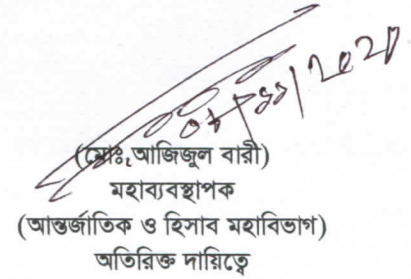 ০৮/১১/২০২০
(মোঃ আজিজুল বারী)
মহাব্যবস্থাপক
(আন্তর্জাতিক ও হিসাব মহাবিভাগ)
অতিরিক্ত দায়িত্বে